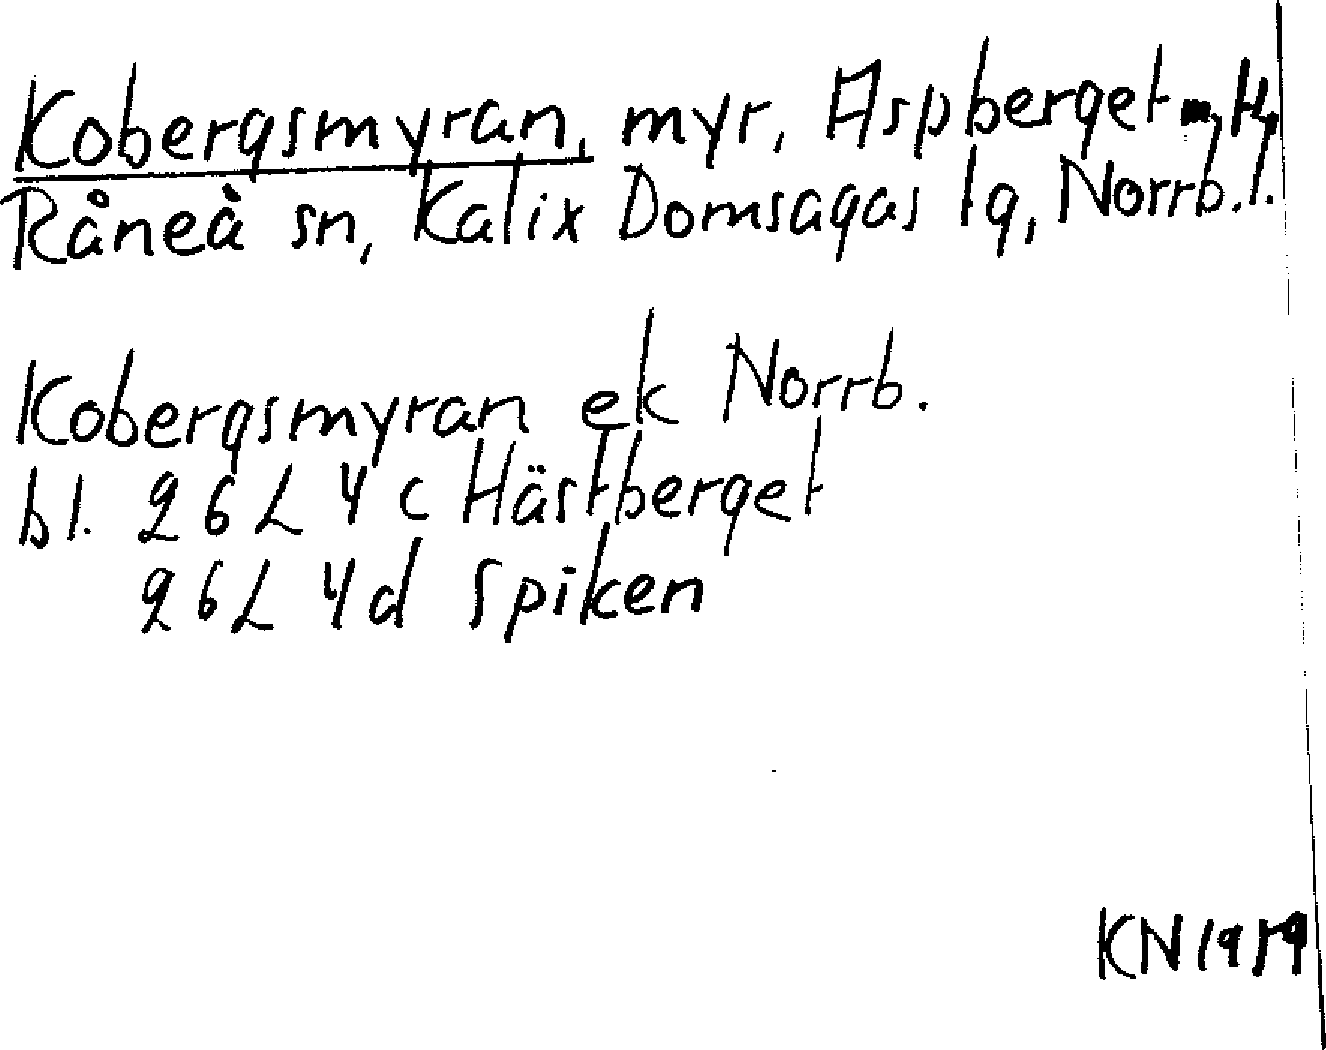 Kobergsmyran, myr, Aspberget
Råneå sn, Kalix Domsagas lg, Norrb. l.
Kobergsmyran ek Norrb.
bl. 26L 4c Hästberget
26L 4d Spiken
KN 1959